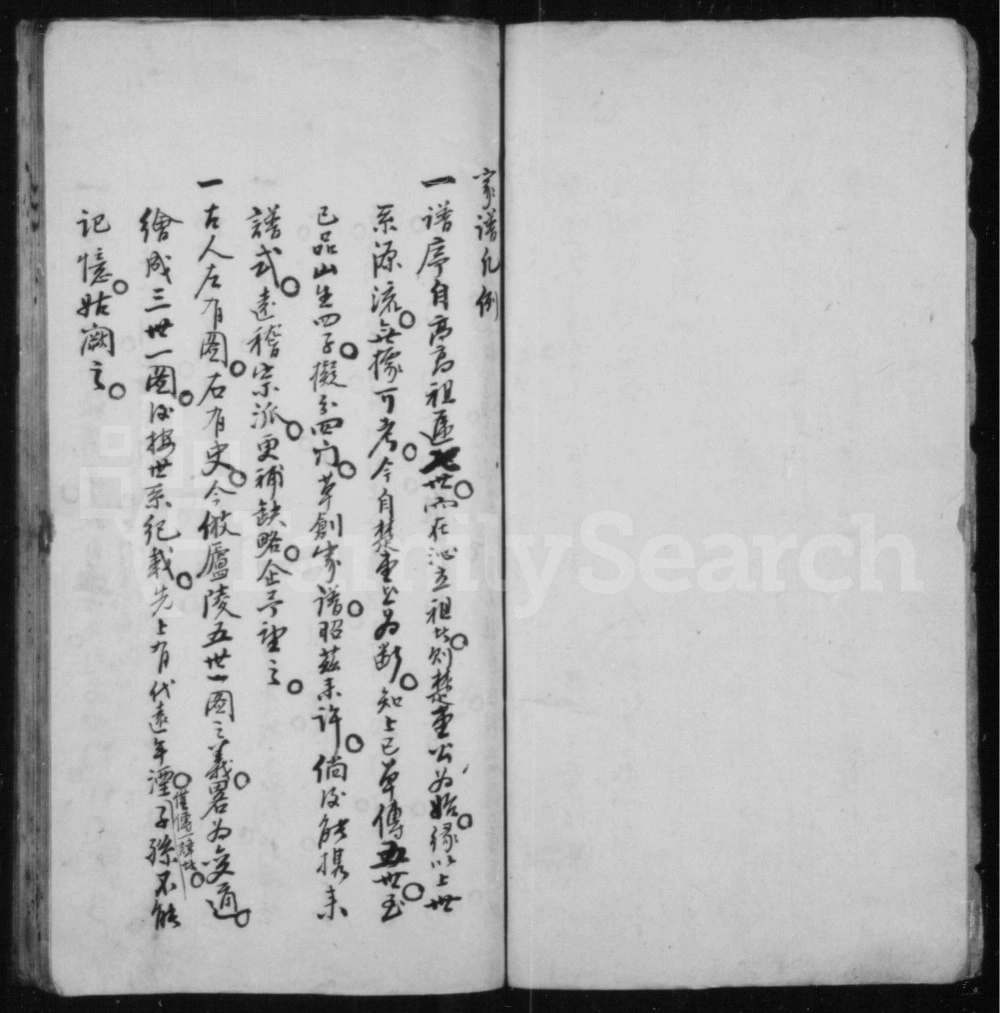 家譜凡例
一譜序自高高祖遞七世而在沁立祖者則楚重公為始緣以上世
系源流無據可考今自楚重公為斷知上已单傳五世至
已品山生四子擬分四門草創家譜昭茲来許倘後能撰来
譜式遠稽宗派更補缺略企予望之
一古人左有圖右有史今倣廬陵五世一圖之義畧為变通
繪成三世一圖後按世系紀載先上有代遠年湮子孫不能
僅傳一
記憶姑闕之
FamilySearch